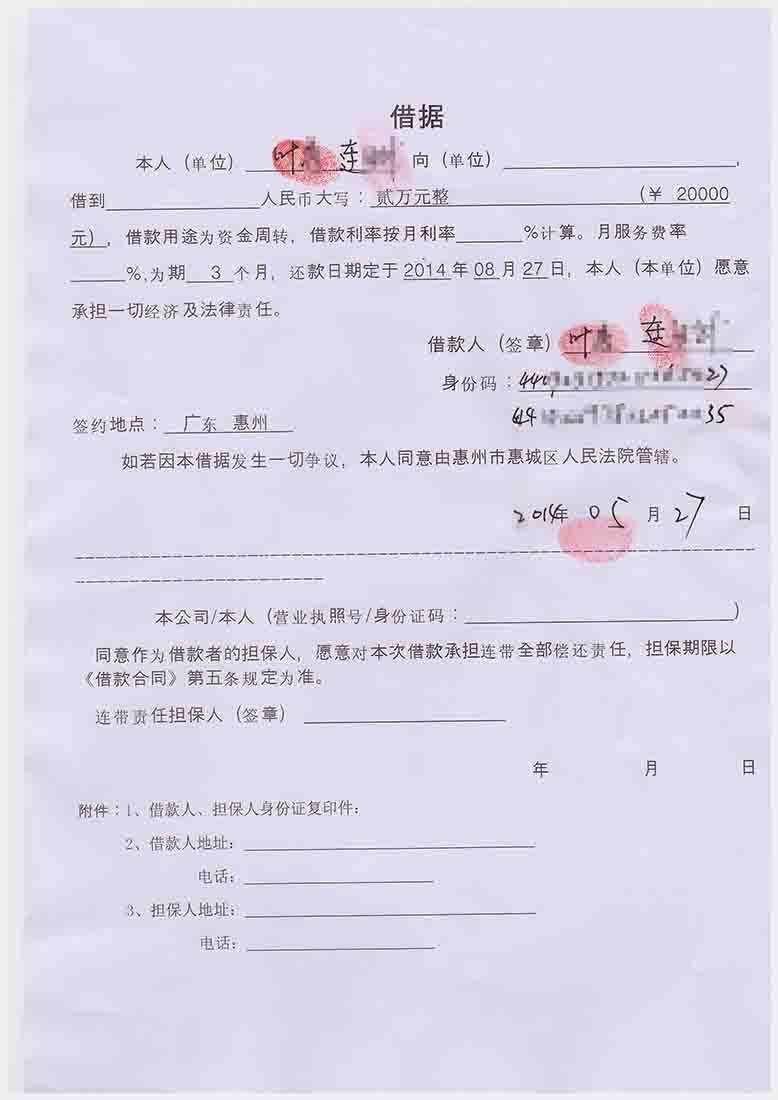 借据
本人（单位） 叶 连 向（单位）
借到 人民币大写：贰万元整 （￥ 20000
元），借款用途为资金周转，借款利率按月利率 %计算。月服务费率
%,为期 3 个月，还款日期定于 2014 年 08 月 27 日，本人（本单位）愿意
承担一切经济及法律责任。
借款人（签章） 叶 连
身份码：440 27
44 35
签约地点： 广东 惠州
如若因本借据发生一切争议，本人同意由惠州市惠城区人民法院管辖。
2014年 05 月 27 日
本公司/本人（营业执照号/身份证码： ）
同意作为借款者的担保人，愿意对本次借款承担连带全部偿还责任，担保期限以
《借款合同》第五条规定为准。
连带责任担保人（签章）
年 月 日
附件：1、借款人、担保人身份证复印件：
2、借款人地址：
电话：
3、担保人地址：
电话：